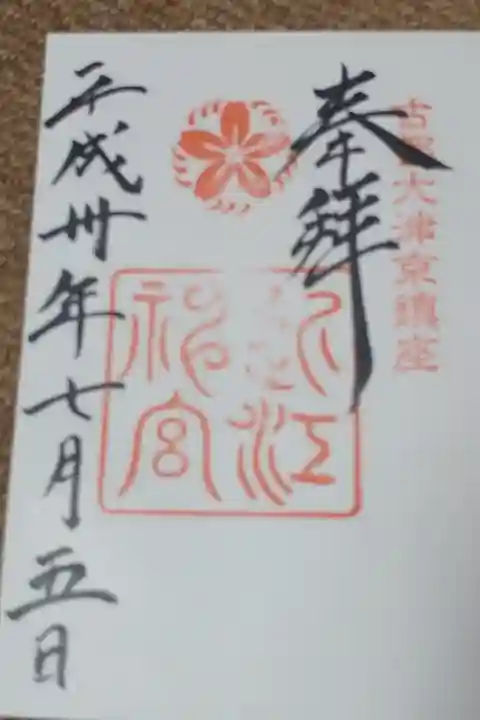 古都大津京鎮座
奉拝
近江
神宮
平成卅年七月五日